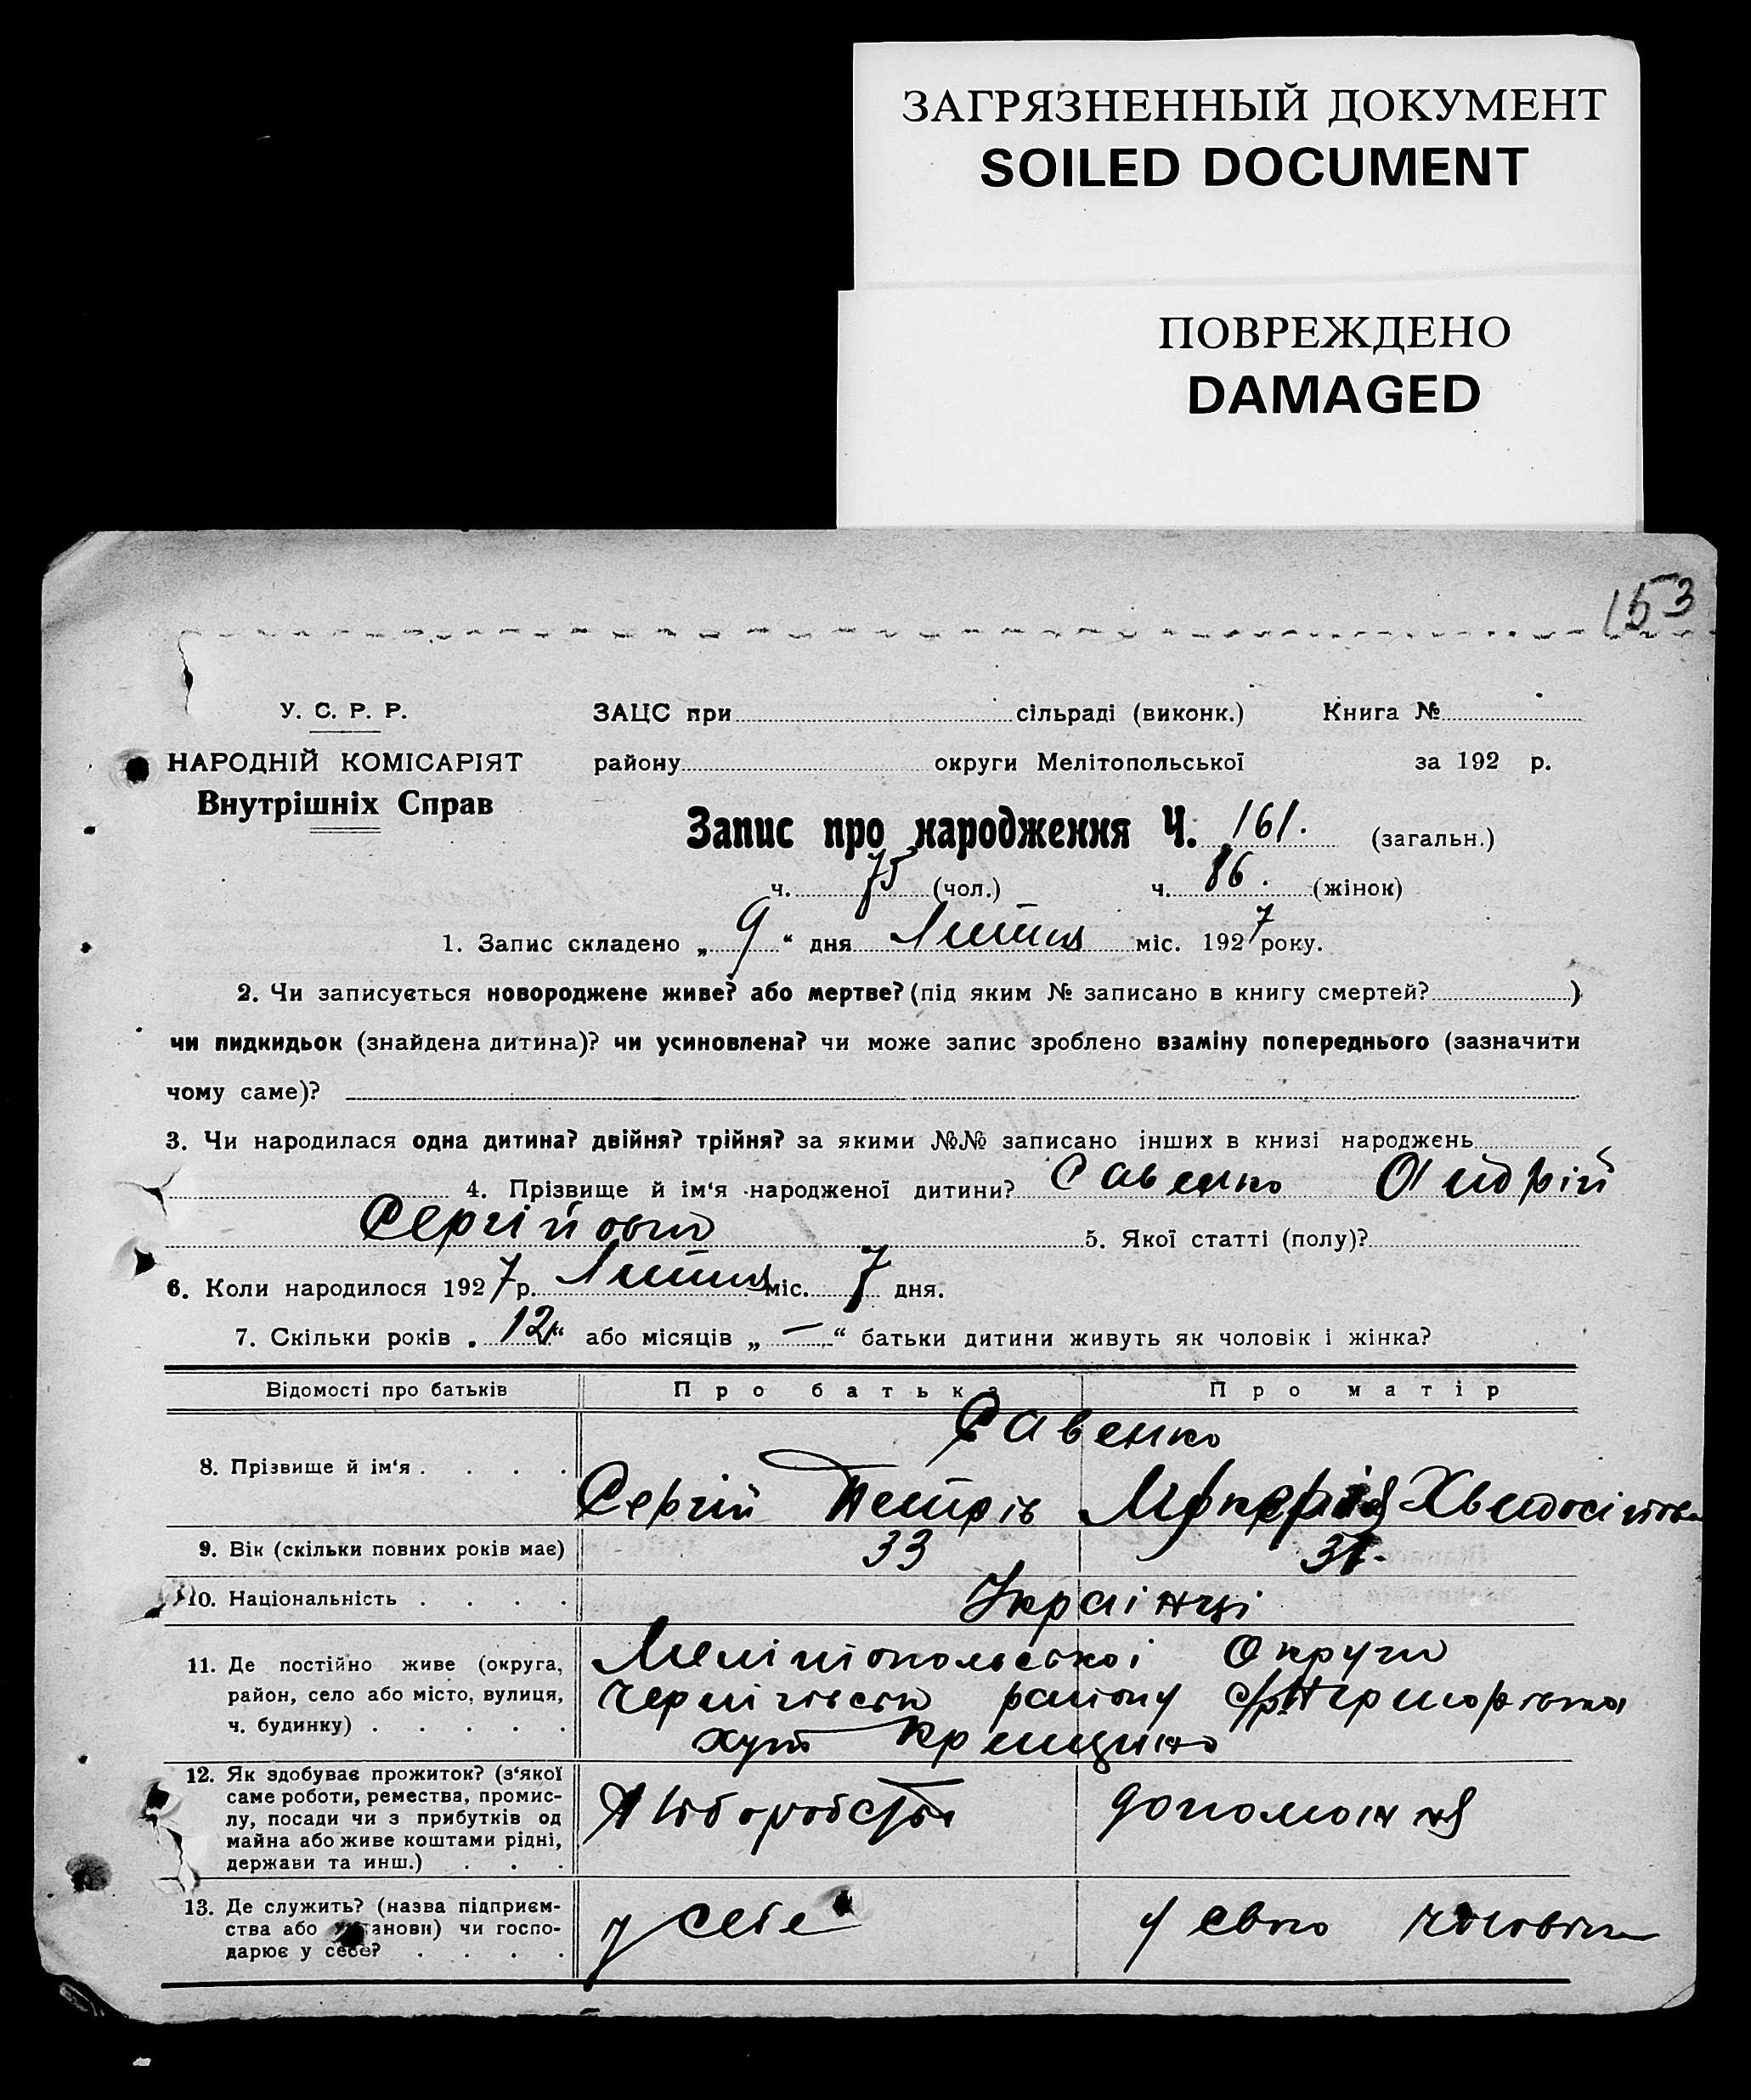 ЗАГРЯЗНЕННЫЙ ДОКУМЕНТ
SOILED DOCUMENT
ПОВРЕЖДЕНО
DAMAGED
153
У. С. Р. Р.
НАРОДНІЙ КОМІСАРІЯТ
Внутрішніх Справ
ЗАЦС при сільраді (виконк.) Книга №
району округи Мелітопольської за 192 р.
Запис про народження Ч. 161. (загальн.)
ч. 75 (чол.) ч. 86. (жінок)
1. Запис складено „ 9 “ дня Липня міс. 1927 року.
2. Чи записується новороджене живе? або мертве? (під яким № записано в книгу смертей? )
чи пидкидьок (знайдена дитина)? чи усиновлена? чи може запис зроблено взаміну попереднього (зазначити
чому саме)?
3. Чи народилася одна дитина? двійня? трійня? за якими №№ записано інших в книзі народжень
4. Прізвище й ім‘я народженої дитини? Савенко Андрій
Сергійович 5. Якої статті (полу)?
6. Коли народилося 1927 р. Липня міс. 7 дня.
7. Скільки років „ 12 “ або місяців „ — “ батьки дитини живуть як чоловік і жінка?
Відомості про батьків Про батька Про матір
Савенко
8. Прізвище й ім‘я . . . . Сергій Петрів
9. Вік (скільки повних років має) 33
10. Національність . . . . Українці
11. Де постійно живе (округа, Мелітопольської Округи
район, село або місто, вулиця, району
ч. будинку) . . . . . хут
12. Як здобуває прожиток? (з‘якої
саме роботи, ремества, промис-
лу, посади чи з прибутків од
майна або живе коштами рідні,
держави та инш.) . . .
13. Де служить? (назва підприєм-
ства або установи) чи госпо-
дарює у себе? . . . . у себе у свого чоловіка